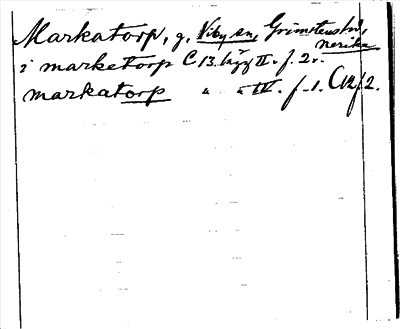 Markatorp, g. Viby sn, Grimstens hd,
Nerike
i marketorp C 13. II. f. 2v.
markatorp " " IV. f. 1.